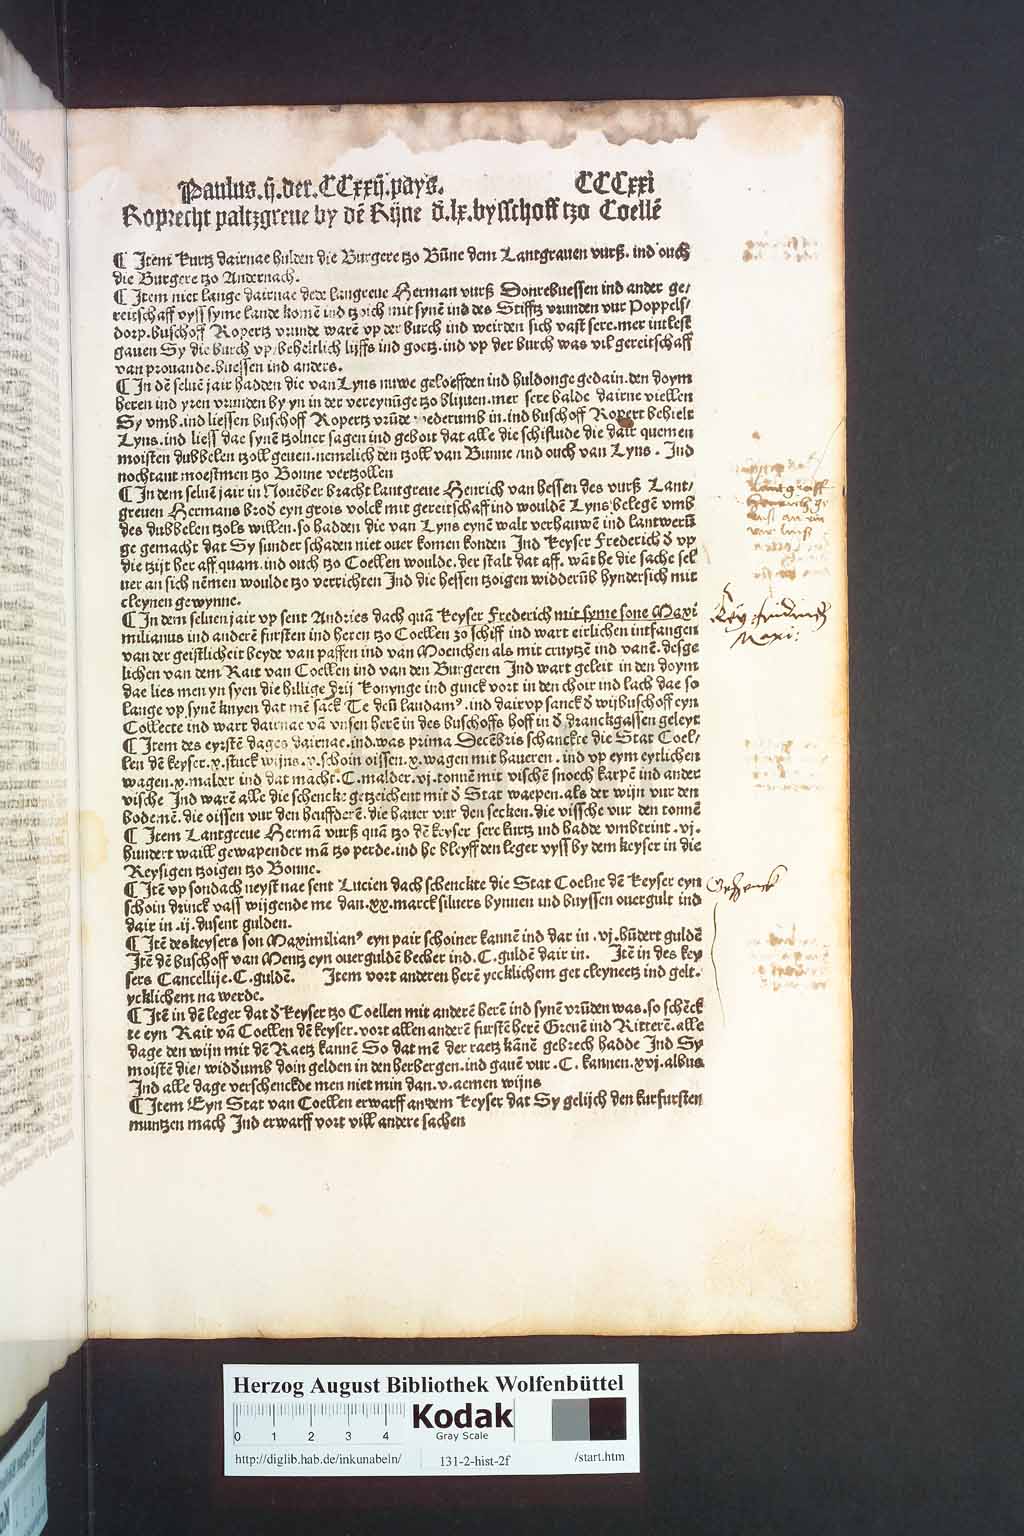 Paulus.ij.der.CCxxij.pays. CCCxxi
Roprecht paltzgreue by dē Rijne d̄.lx.bysschoff tzo Coellē
¶ Item kurtz dairnae hulden die Burgere tzo Būne dem Lantgrauen vurß. ind ouch
die Burgere tzo Andernach.
¶ Item niet lange dairnae dede langreue Herman vurß Donrebuessen ind ander ge/
reitschaff vyss syme lande komē ind tzoich mit synē ind des Stifftz vrunden vur Poppels/
dorp.buschoff Ropertz vrunde warē vp der burch ind weirden sich vast sere.mer intlest
gauen Sy die burch vp/beheltlich lijffs ind goetz.ind vp der burch was vil gereitschaff
van prouande.buessen ind anders.
¶ In dē seluē jair hadden die van Lyns nuwe geloeffden ind huldonge gedain.den doym
heren ind yren vrunden by yn in der vereynūge tzo blijuen.mer sere balde dairne viellen
Sy vmb.ind liessen buschoff Ropertz vrūde wederumb in.ind buschoff Ropert behielt
Lyns.ind liess dae synē tzolner sagen ind geboit dat alle die schiflude die dair quemen
moisten dubbelen tzoll geuen.nemelich den tzoll van Bunne /ind ouch van Lyns. Ind
nochtant moestmen tzo Bonne vertzollen
¶ In dem seluē jair in Nouēber bracht lantgreue Henrich van hessen des vurß Lant/
greuen Hermans brod̄ eyn grois volck mit gereitschaff ind wouldē Lyns belegē vmb
des dubbelen tzols willen.so hadden die van Lyns eynē walt verhauwē ind lantwerū
ge gemacht dat Sy sunder schaden niet ouer komen konden Ind keyser Frederich d̄ vp
die tzijt her aff quam.ind ouch tzo Coellen woulde.der stalt dat aff.wāt he die sache sel
uer an sich nēmen woulde tzo verrichten Ind die hessen tzoigen widderūb hyndersich mit
cleynen gewynne.
¶ In dem seluen jair vp sent Andries dach quā keyser Frederich mit syme sone Maxi
milianus ind anderē fursten ind heren tzo Coellen zo schiff ind wart eirlichen intfangen
van der geistlicheit beyde van paffen ind van Moenchen als mit cruytzē ind vanē.desge
lichen van dem Rait van Coellen ind van den Burgeren Ind wart geleit in den doym
dae lies men yn syen die hillige drij konynge ind gnick vort in den choir ind lach dae so
lange vp synē knyen dat mē sack Te deū laudam⁹.ind dair vp sanck d̄ wijbuschoff eyn
Collecte ind wart dairnae vā vnsen herē in des buschoffs hoff in d̄ dranckgassen geleyt
¶ Item des eyrstē dages dairnae.ind.was prima Decēbris schanckte die Stat Coel/
len dē keyser.x.stuck wijns.x.schoin oissen.x.wagen mit haueren.ind vp eym eytlichen
wagen.x.malder ind dat macht.C.malder.vj.tonnē mit vischē snoech karpē ind ander
vische Ind warē alle die schencke getzeichent mit d̄ Stat waepen.als der wijn vur den
bodemē.die oissen vur den heuffderē.die hauer vur den secken.die vissche vur den tonnē
¶ Item Lantgreue Hermā vurß quā tzo dē keyser sere kurtz ind hadde vmbtrint.vj.
hundert waill gewapender mā tzo perde.ind he bleyff den leger vyss by dem keyser in die
Reysigen tzoigen tzo Bonne.
¶ Itē vp sondach neyst nae sent Lucien dach schenckte die Stat Coelne dē keyser eyn
schoin drinck vass wijgende me dan.xx.marck siluers bynnen ind buyssen ouergult ind
dair in.ij.dusent gulden.
¶ Itē des keysers son Maximilian⁹ eyn pair schoiner kannē ind dar in.vj.hūdert guldē
Itē dē buschoff van Mentz eyn ouerguldē becher ind.C.guldē dair in. Itē in des key
sers Cancellije.C.guldē. Item vort anderen herē yecklichem get cleyneetz ind gelt.
ycklichem na werde.
¶ Itē in dē leger dat d̄ keyser tzo Coellen mit anderē herē ind synē vrūden was.so schēck
te eyn Rait vā Coellen dē keyser.vort allen anderē furstē herē Greuē ind Ritterē.alle
dage den wijn mit dē Raetz kannē So dat mē der raetz kānē gebrech hadde Ind Sy
moistē die/widdumb doin gelden in den herbergen.ind gauē vur.C.kannen.xvj.albus
Ind alle dage verschenckde men niet min dan.v.aemen wijns
¶ Item Eyn Stat van Coellen erwarff an dem keyser dat Sy gelijch den kurfursten
muntzen mach Ind erwarff vort vill andere sachen
Maxi:
Herzog August Bibliothek Wolfenbüttel
0 1 2 3 4
Kodak
Gray Scale
http://diglib.hab.de/inkunabeln/ 131-2-hist-2f /start.htm